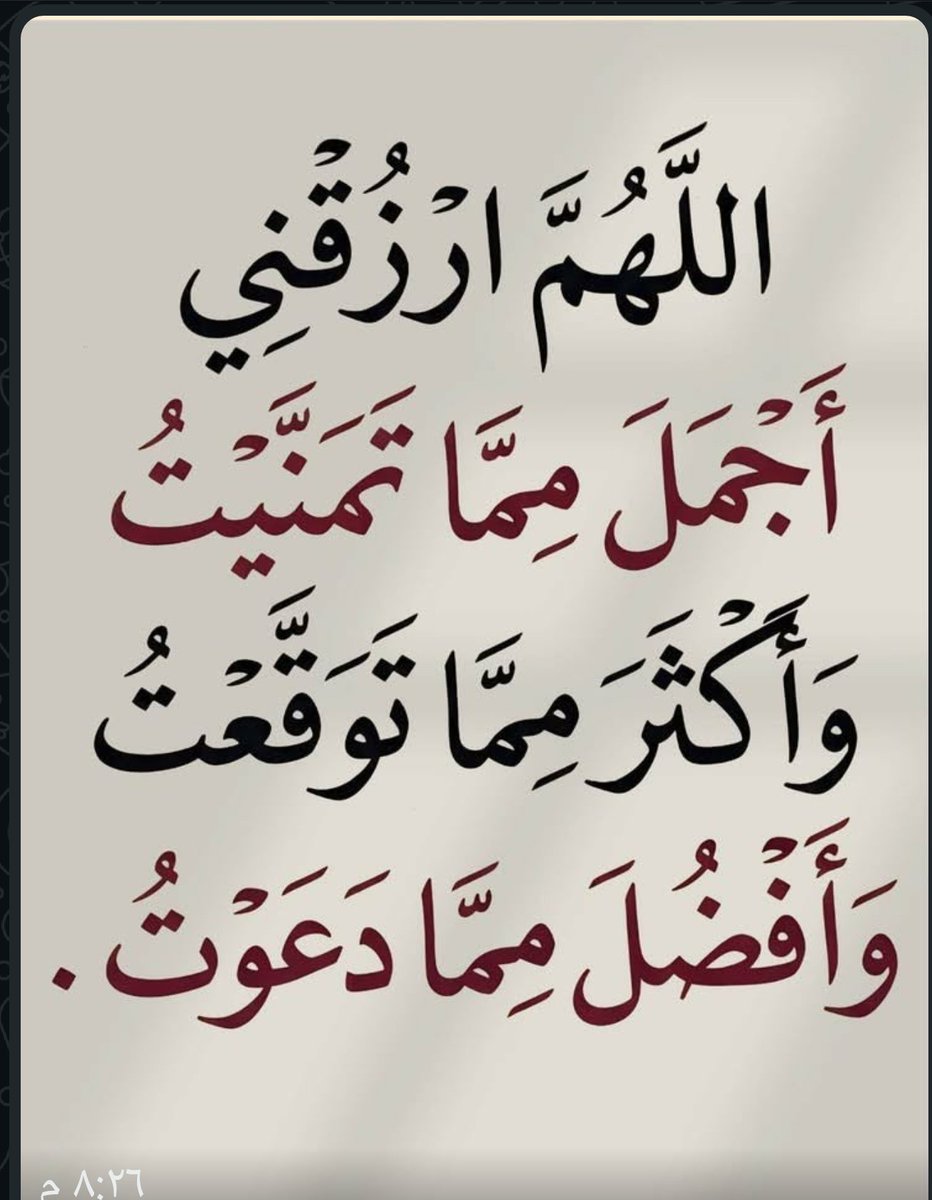 اللَّهُمَّ ارْزُقْنِي
أَجْمَلَ مِمَّا تَمَنَّيْتُ
وَأَكْثَرَ مِمَّا تَوَقَّعْتُ
وَأَفْضُلَ مِمَّا دَعَوْتُ .
٨:٢٦ م